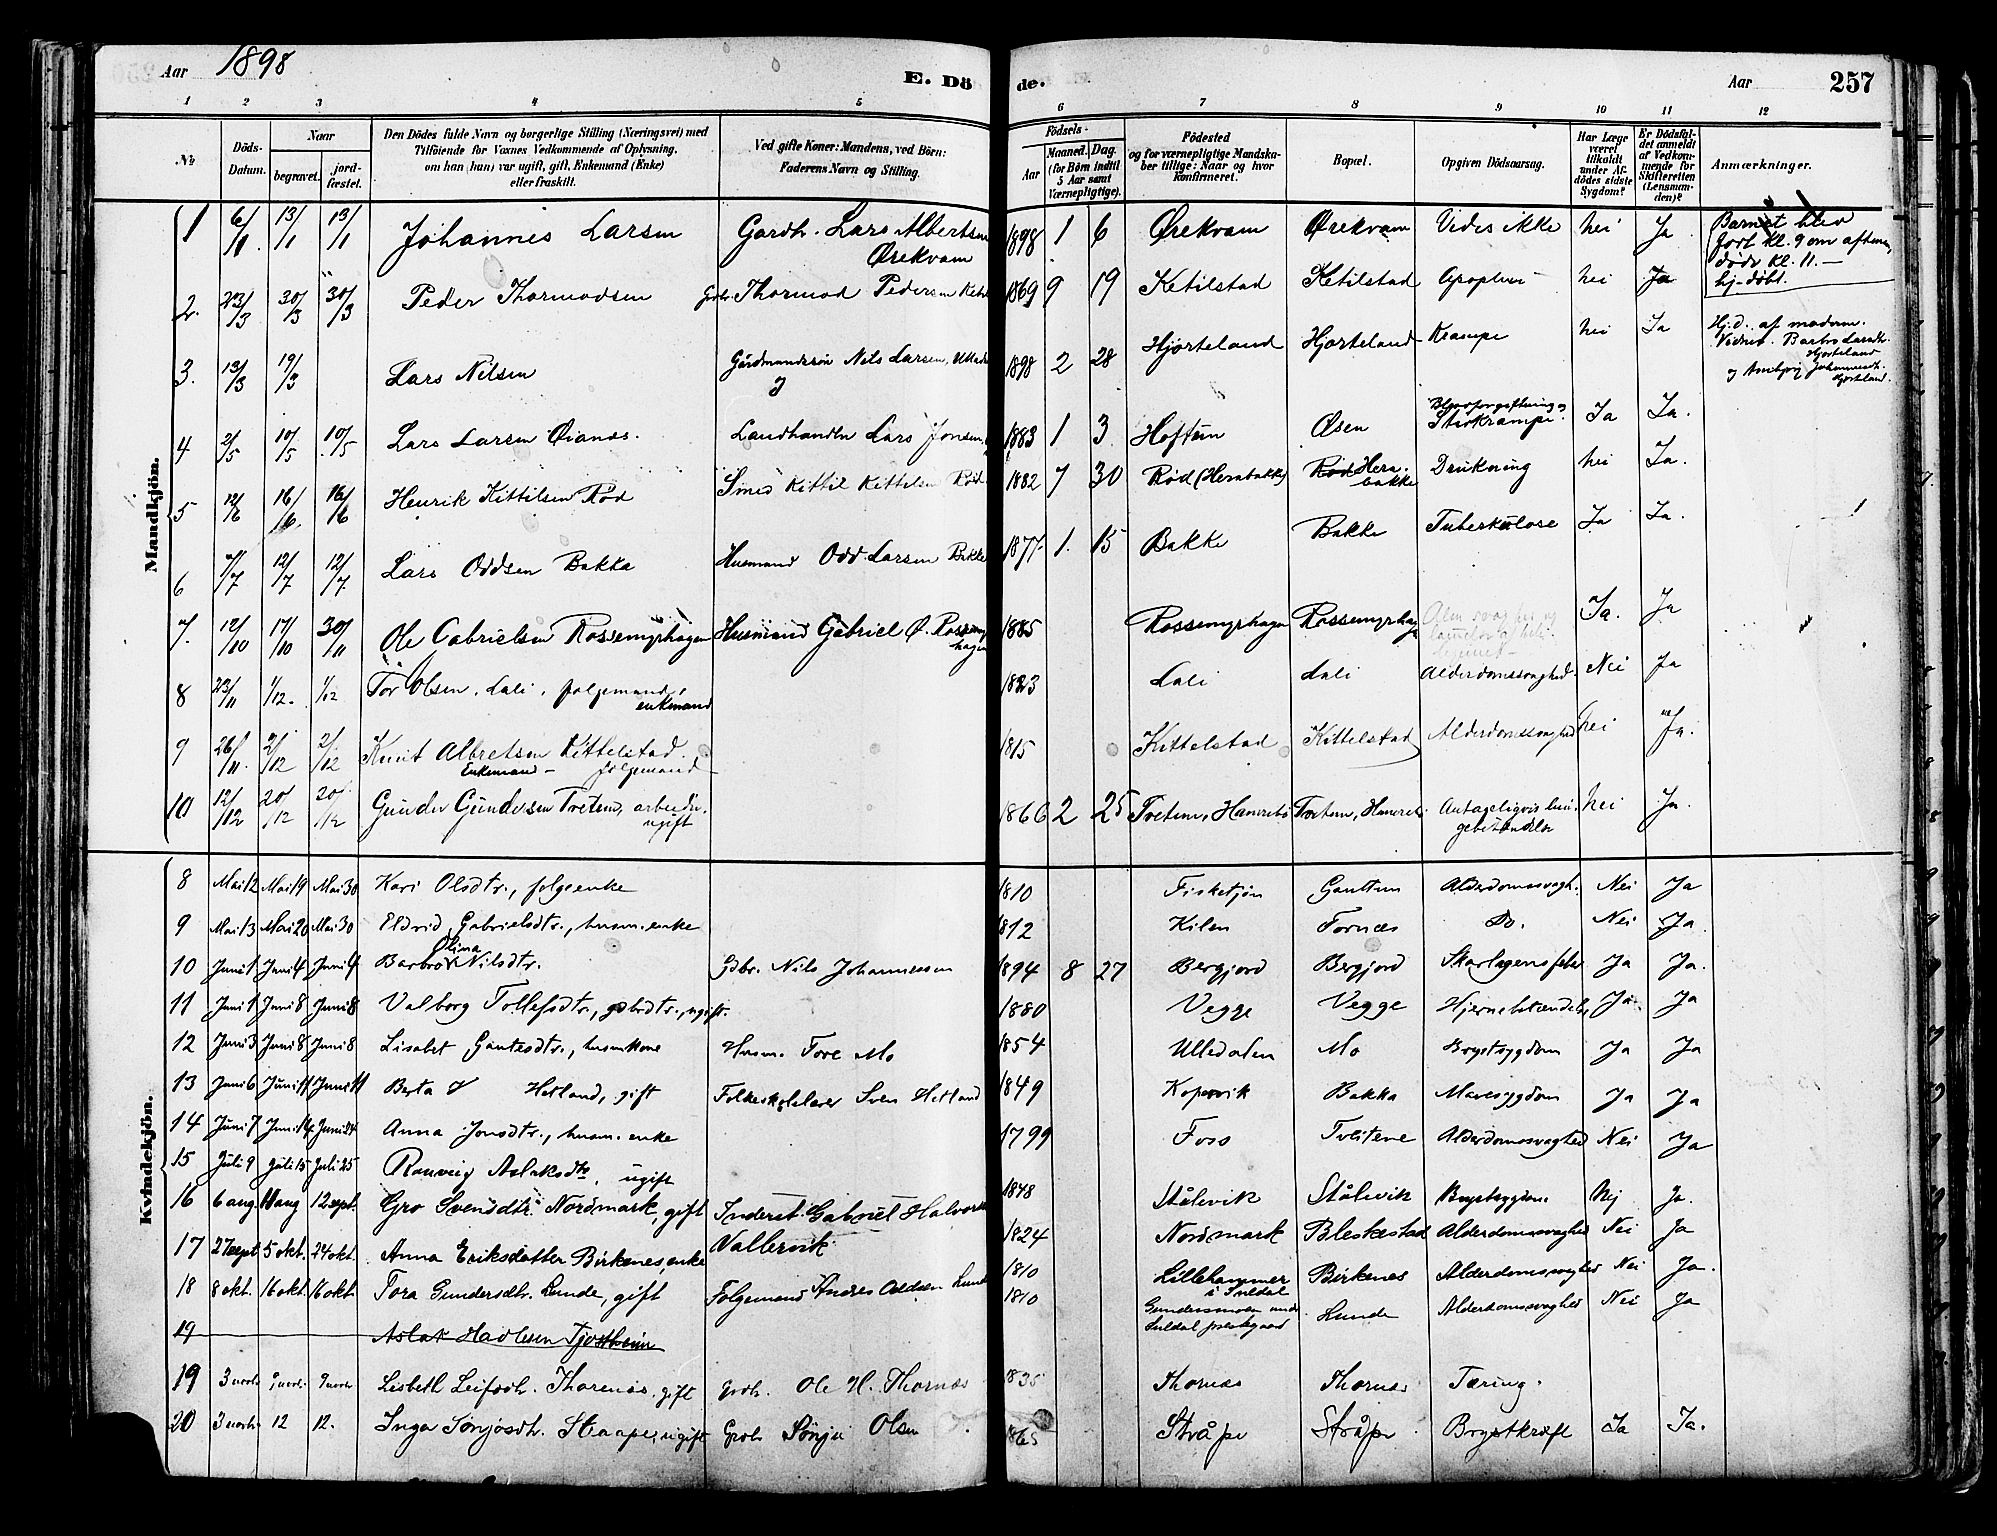 Aar 1898 E. Dö de. Aar 257
1 2 3 4 5 6 7 8 9 10 11 12
No
Döds-Datum.
Naar
begravet.
jord-fæstet.
Den Dödes fulde Navn og borgerlige Stilling (Næringsvei) med
Tilföiende for Voxnes Vedkommende af Oplysning,
om han (hun) var ugift, gift, Enkemand (Enke)
eller fraskilt.
Ved gifte Koner: Mandens, ved Börn:
Faderens Navn og Stilling.
Födsels-
Aar
Maaned. Dag.
(for Börn indtil
5 Aar samt
Værnepligtige).
Födested
og for værnepligtige Mandska-
ber tillige: Naar og hvor
konfirmeret.
Bopæl.
Opgiven Dödsaarsag.
Har Læge
været
tilkaldt
under Af-
dödes sidste
Sygdom?
Er Dödsfal-
det anmeldt
af Vedkom-
mende for
Skifteretten
(Lensman-
den)?
Anmærkninger.
Mandkjön.
1 6/1 13/1 13/1 Johannes Larsen Gardb. Lars Albertsen Ørekvam 1898 1 6 Ørekvam Ørekvam Vides ikke nei Ja Barnet blev
født kl. 9 om aftenen,
døde kl. 11. —
hj-døbt.
2. 23/3 30/3 30/3 Peder Thormodsen Thormod Pedersen 1869 9 19 Ketilstad Ketilstad Apoplexi nei Ja
3. 13/3 19/3 Lars Nilsen Gårdmandssøn Nils Larsen 1898 2 28 Hjorteland Hjorteland Krampe nei Ja Hj.d. af moderen.
Vidner. Barbro Larsdtr.
Hjorteland
Hjorteland.
4 2/5 10/5 10/5 Lars Larsen Øianes. Landhandler Lars Jonsen 1883 1 3 Hoftun Øsen Blodforgiftning og Stivkrampe Ja Ja.
5 12/6 16/6. 16/6 Henrik Kittilsen Rød Smed Kittil Kittilsen Rød 1882 7 30 Rød (Herabakke) Rød Hera-bakke Drukning nei Ja.
6 7/7 12/7 12/7. Lars Oddsen Bakka Husmand Odd Larsen Bakke 1877 1. 15 Bakke Bakke Tuberkulose Ja Ja.
7. 12/10 17/10 30/11 Ole Gabrielsen Røssemyrhagen Husmand Gabriel Ø. 1885 Røssemyrhagen Ja. Ja
8 23/11 1/12. 1/12 Tor Olsen Lali, følgemand, enkemand 1823 Lali Lali Alderdomssvaghed. Nei Ja
9 26/11. 2/12 2/12 Knut Albretsen Kittelstad. Enkemand — følgemand — 1815 Kittelstad Kittelstad Alderdomssvaghed nei Ja.
10 12/12 20/12 20/12 Gunder Gundersen Tveten, arbeider, ugift 1866 2 25 nei Ja.
Kvindekjön.
8 Mai 12 Mai 19 Mai 30 Kari Olsdtr., følgeenke 1810 Fisketjøn Gauttun Alderdomssvagh. Nei Ja
9 Mai 13 Mai 20 Mai 30 Eldrid Gabrielsdtr., husm. enke 1812 Kilen Fornæs Do. Nei Ja.
10 Juni 1 Juni 4 Juni 9 Barbro Olina Nilsdtr. Gdbr. Nils Johannessen 1894 8 27 Bergjord Bergjord Skarlagensfeber Ja Ja.
11 Juni 1 Juni 8 Juni 8 Valborg Tollefsdtr., gdbrdtr., ugift. 1880 Vegge Vegge Hjernebetændelse Ja. Ja
12 Juni 3 Juni 8 Juni 8 Lisabet Gautesdtr., husmkone Husm. Tore Mo 1854 Ulledalen Mo Brystsygdom Ja Ja
13 Juni 6 Juni 11 Juni 11 Berta Hetland, gift Folkeskolelærer Sven Hetland 1849 Kopervik Bakka Mavesygdom Ja Ja
14 Juni 7 Juni 14 Juni 24 Anna Jonsdtr., husm. enke 1799 Foss Alderdomssvaghed Nei Ja
15 Juli 9 Juli 15 Juli 25 Ranveig Aslaksdtr, ugift 1848 Stålevik Stålevik Brystsygdom. Nej Ja.
16 6 aug. 11 aug 12 sept. Gro Svensdtr. Nordmark, gift Inderst. Gabriel Halvorsen Vallervik 1824 Nordmark Bleskestad Alderdomssvaghed Nei Ja
17 27 sept 5 okt. 24 okt. Anna Eriksdatter Birkenes, enke 1810 Lillehammer i Suldal Birkenes Alderdomssvaghed Nei Ja.
18 8 okt. 16 okt. 16 okt. Tora Gundersdtr. Lunde, gift Følgemand Andres Oddsen Lunde 1810 Gundersmoen under Suldal prestegaard Lunde Alderdomssvaghed Nei Ja
19 Aslak Hadlesen Tjostheim
19 3 novbr 9 novbr. 9 novbr Lisbett Leifsdtr. Thornæs, gift Grdbr. Ole H. Thornæs 1835 Thornæs Thornæs Tæring.
20 3 novbr 12 12. Inga Sønjosdtr. Straape, ugift Grdbr Sønju Olsen 1865 Stråpe Stråpe Brystkræft Ja Ja.